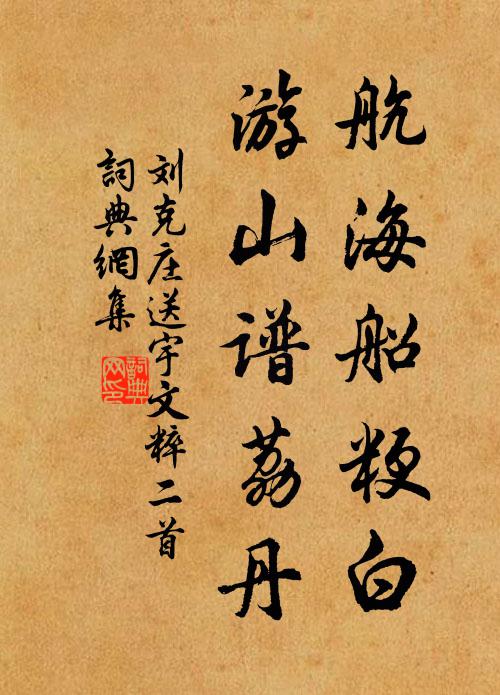 航海船粳白
游山谱荔丹
刘克庄送宇文粹二首
詞典網集
詞典网印